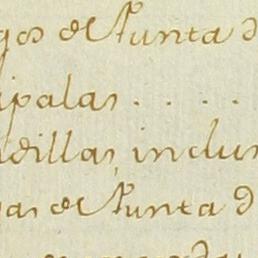 gos de Punta d
ipalas . . . .
adillas, inclus
as de Punta d